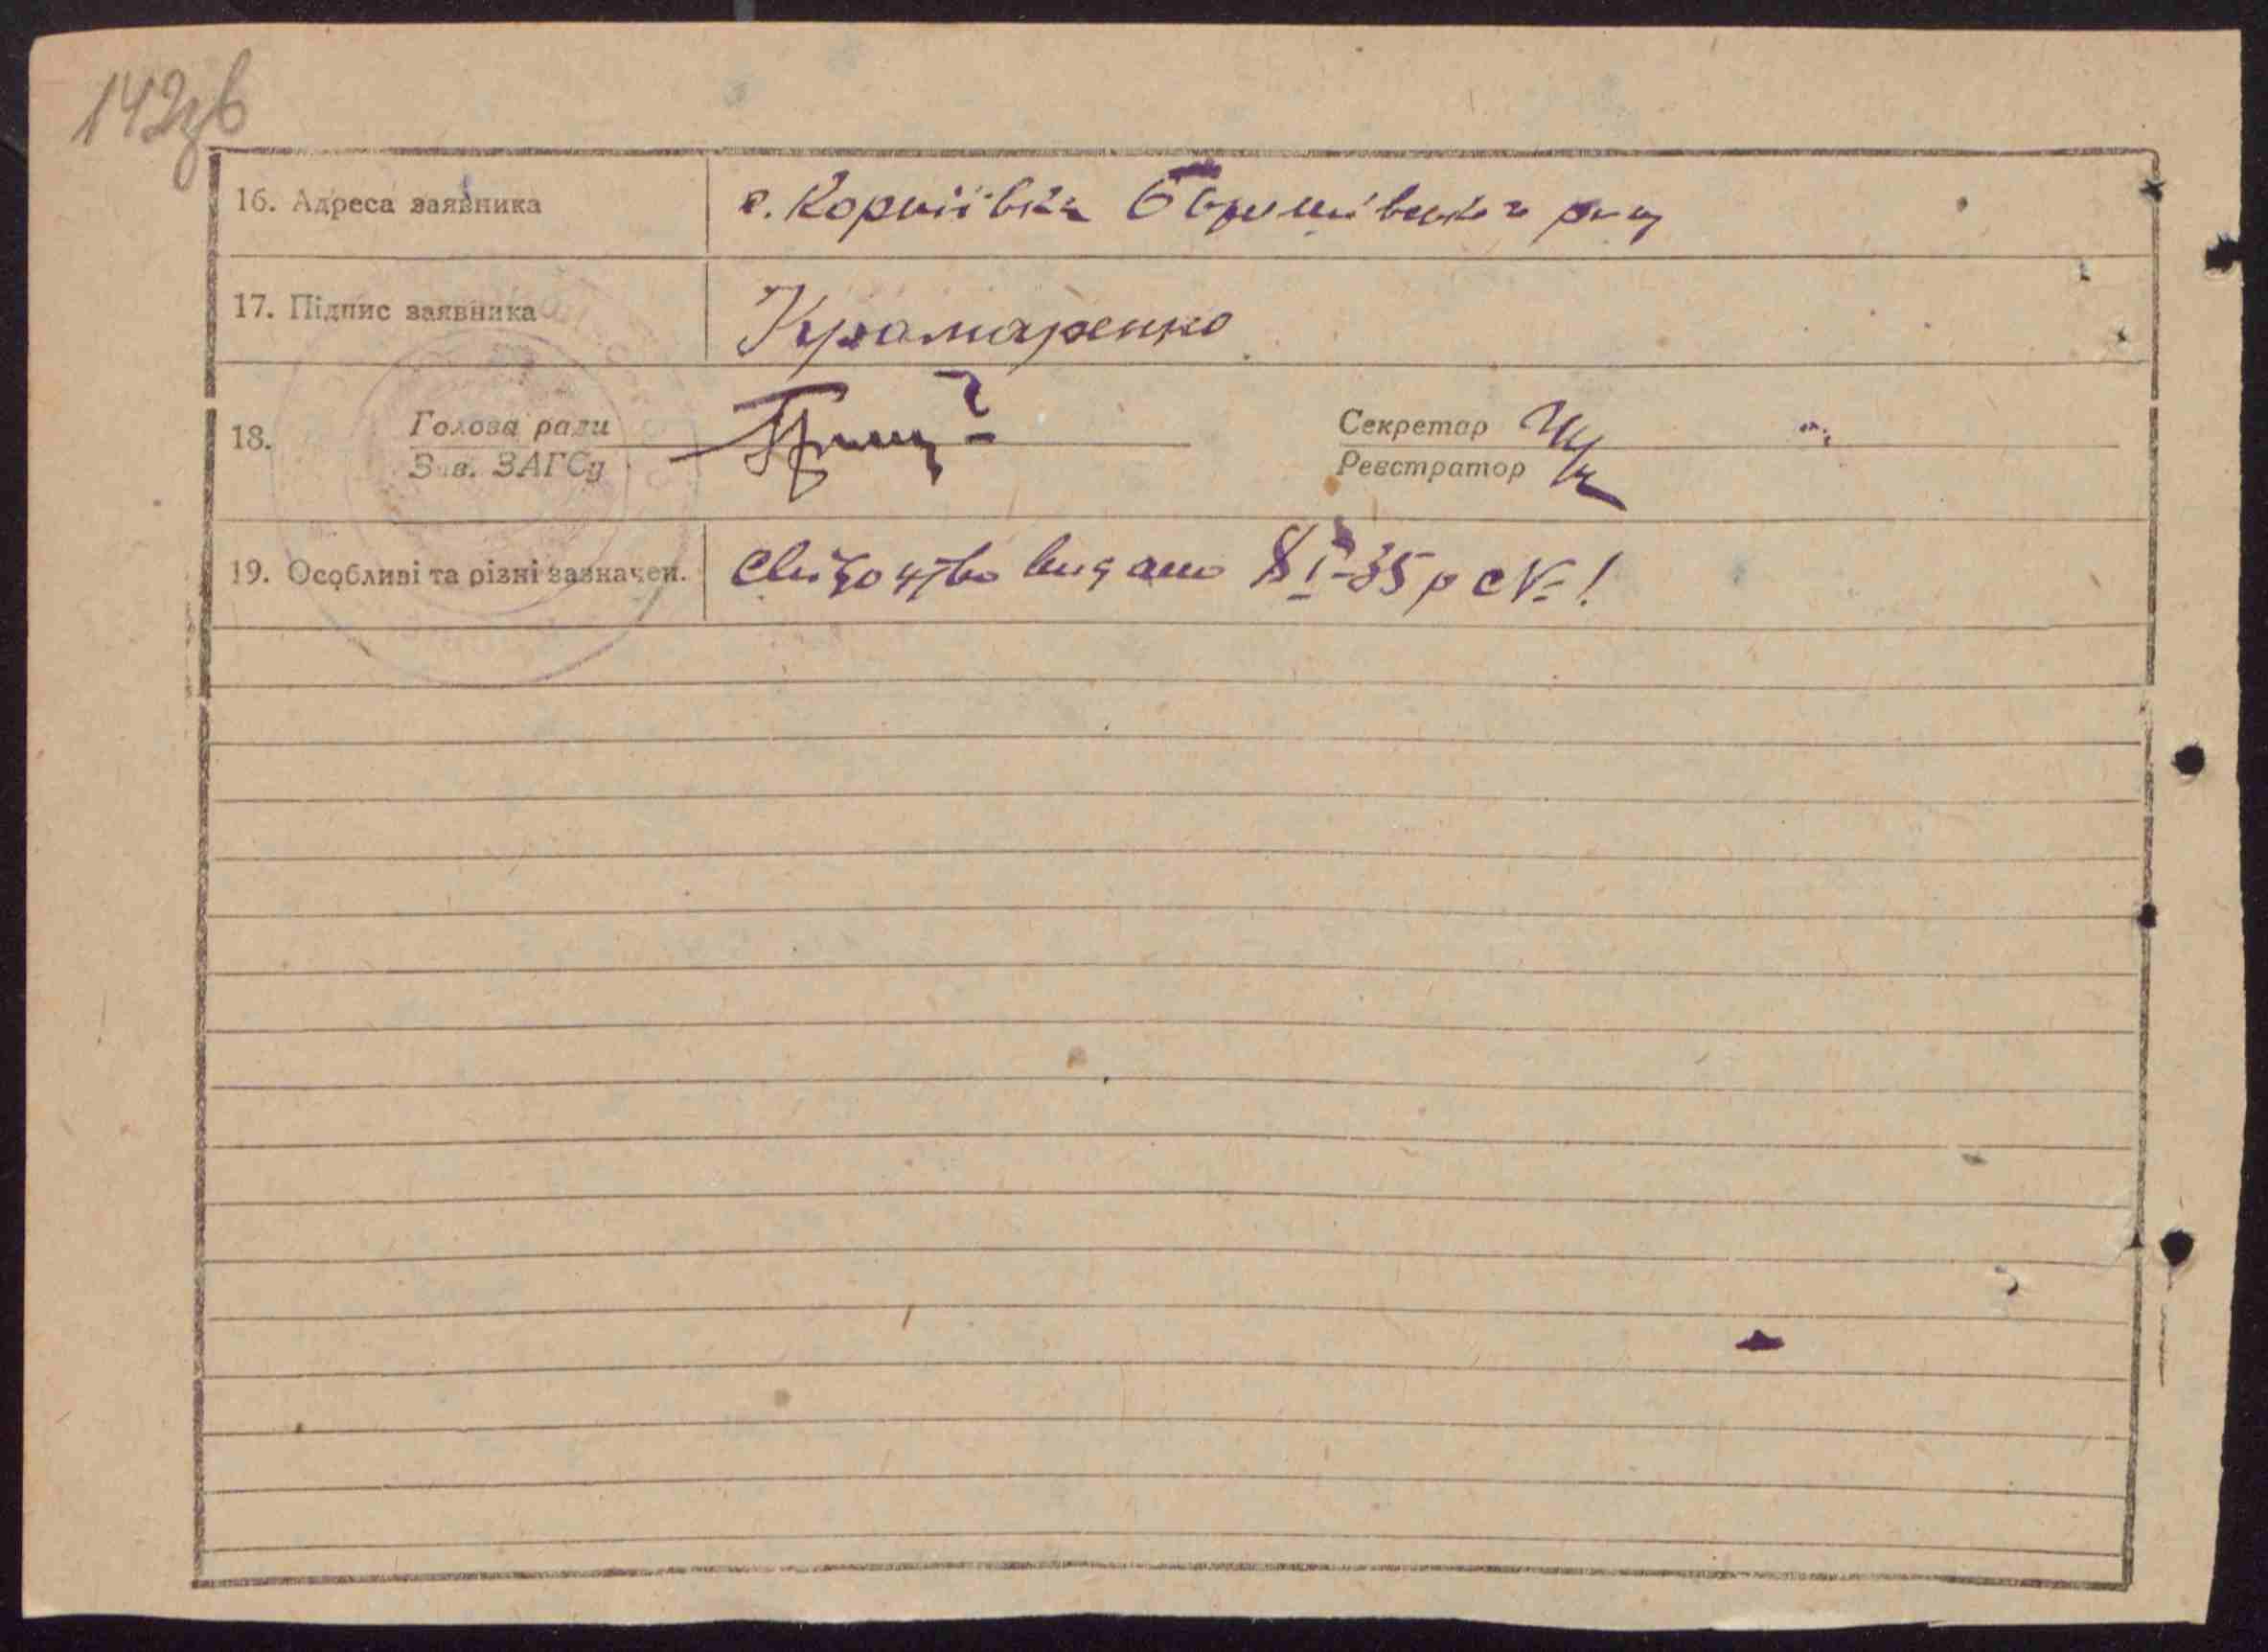 142зв
16. Адреса заявника с. Корніївка Баришівського р-ну
17. Підпис заявника Крамаренко
18. Голова ради Секретар
Зав. ЗАГСу Реєстратор
19. Особливі та різні зазначен. Свідоцтво видано 8/I-35 р с № 1